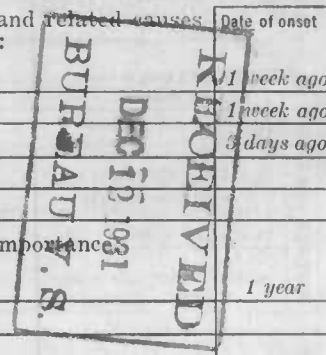 and related causes Date of onset
:
1 week ago
1 week ago
3 days ago
importance
1 year
RECEIVED
DEC
BUREAU V. S.